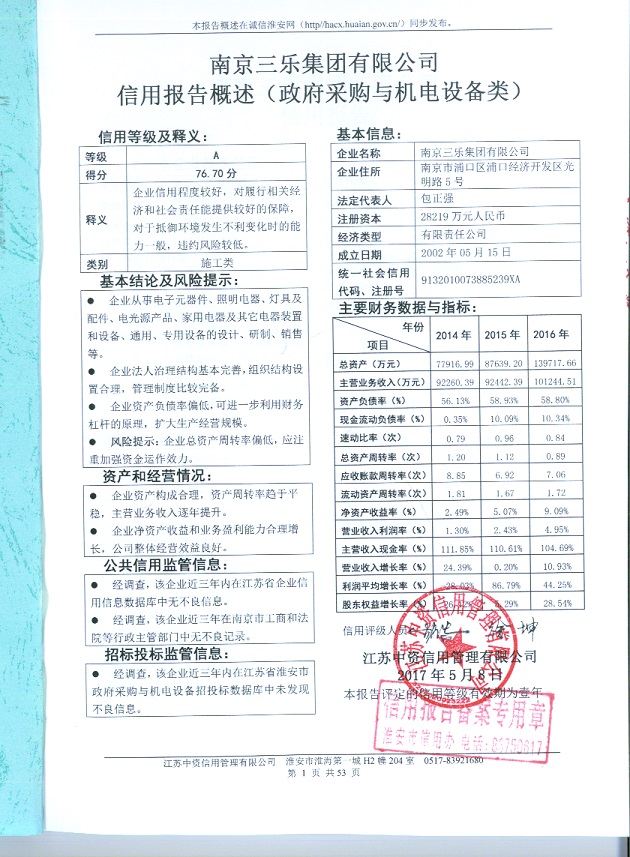 本报告概述在诚信淮安网（http//hacx.huaian.gov.cn/）同步发布。
南京三乐集团有限公司
信用报告概述（政府采购与机电设备类）
信用等级及释义：
等级 A
得分 76.70分
释义 企业信用程度较好，对履行相关经
济和社会责任能提供较好的保障，
对于抵御环境发生不利变化时的能
力一般，违约风险较低。
类别 施工类
基本结论及风险提示：
● 企业从事电子元器件、照明电器、灯具及
配件、电光源产品、家用电器及其它电器装置
和设备、通用、专用设备的设计、研制、销售
等。
● 企业法人治理结构基本完善，组织结构设
置合理，管理制度比较完备。
● 企业资产负债率偏低，可进一步利用财务
杠杆的原理，扩大生产经营规模。
● 风险提示：企业总资产周转率偏低，应注
重加强资金运作效力。
资产和经营情况：
● 企业资产构成合理，资产周转率趋于平
稳，主营业务收入逐年提升。
● 企业净资产收益和业务盈利能力合理增
长，公司整体经营效益良好。
公共信用监管信息：
● 经调查，该企业近三年内在江苏省企业信
用信息数据库中无不良信息。
● 经调查，该企业近三年在南京市工商和法
院等行政主管部门中无不良记录。
招标投标监管信息：
● 经调查，该企业近三年内在江苏省淮安市
政府采购与机电设备招投标数据库中未发现
不良信息。
基本信息：
企业名称 南京三乐集团有限公司
企业住所 南京市浦口区浦口经济开发区光
明路5号
法定代表人 包正强
注册资本 28219万元人民币
经济类型 有限责任公司
成立日期 2002年05月15日
统一社会信用
代码、注册号 9132010073885239XA
主要财务数据与指标：
年份
项目 2014年 2015年 2016年
总资产（万元） 77916.99 87639.20 139717.66
主营业务收入(万元) 92260.39 92442.39 101244.51
资产负债率（%） 56.13% 58.93% 58.80%
现金流动负债率（%） 0.35% 10.09% 10.34%
速动比率（次） 0.79 0.96 0.84
总资产周转率（次） 1.20 1.12 0.89
应收账款周转率(次) 8.85 6.92 7.06
流动资产周转率(次) 1.81 1.67 1.72
净资产收益率（%） 2.49% 5.07% 9.09%
营业收入利润率（%） 1.30% 2.43% 4.95%
主营收入现金率（%） 111.85% 110.61% 104.69%
营业收入增长率（%） 24.39% 0.20% 10.93%
利润平均增长率（%） 86.79% 44.25%
股东权益增长率（%） 28.54%
信用评级人员：
江苏中资信用管理有限公司
2017年5月8日
本报告评定的信用等级有效期为壹年
信用报告备案专用章
淮安市信用办 电话：83750617
江苏中资信用管理有限公司 淮安市淮海第一城H2幢204室 0517-83921680
第 1 页 共 53 页